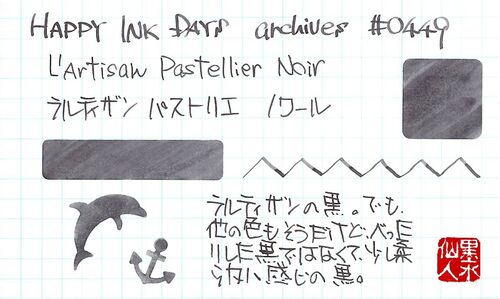 HAPPY INK DAYS archives #0449
L'Artisan Pastellier Noir
ラルティザン パストリエ ノワール
ラルティザンの黒。でも、
他の色もそうだけど、べった
りした黒ではなくて、少し柔
らかい感じの黒。
墨水
仙人